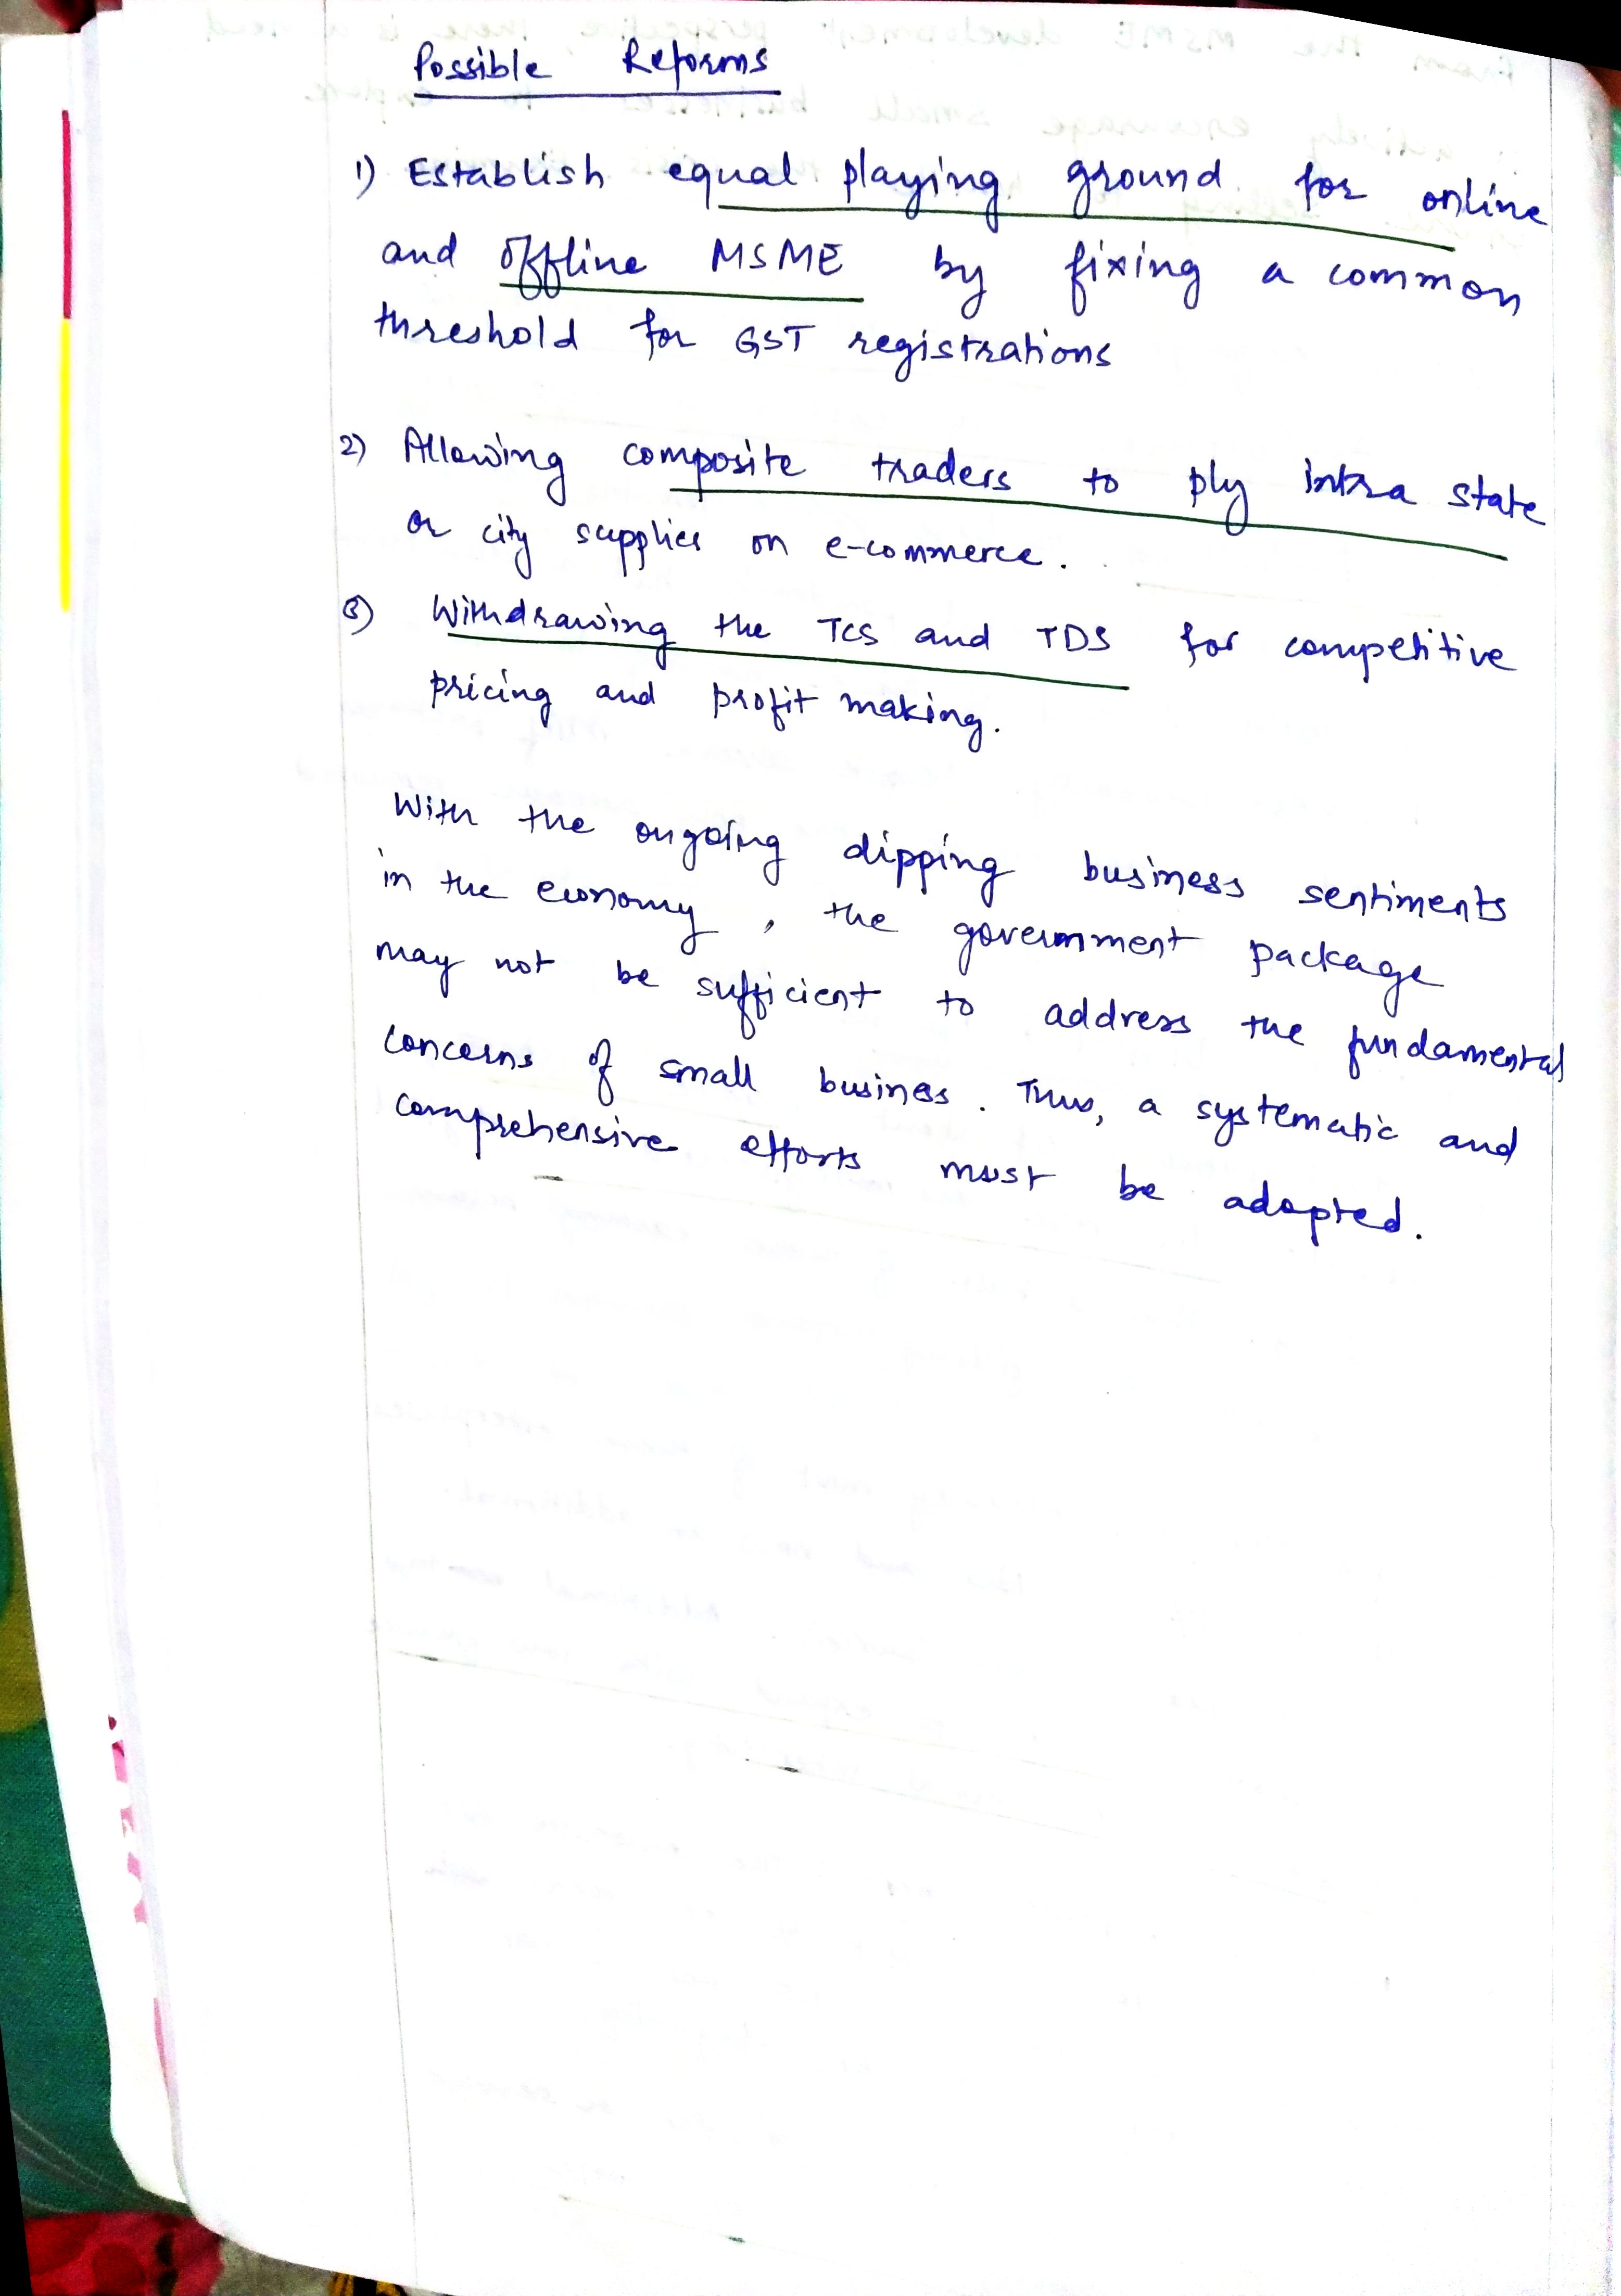 Possible Reforms
1) Establish equal playing ground for online
and offline MSME by fixing a common
threshold for GST registrations
2) Allowing composite traders to ply intra state
or city supplies on e-commerce.
3) Withdrawing the TCS and TDS for competitive
pricing and profit making.
With the ongoing dipping business sentiments
in the economy, the government package
may not be sufficient to address the fundamental
concerns of small business. Thus, a systematic and
comprehensive efforts must be adopted.